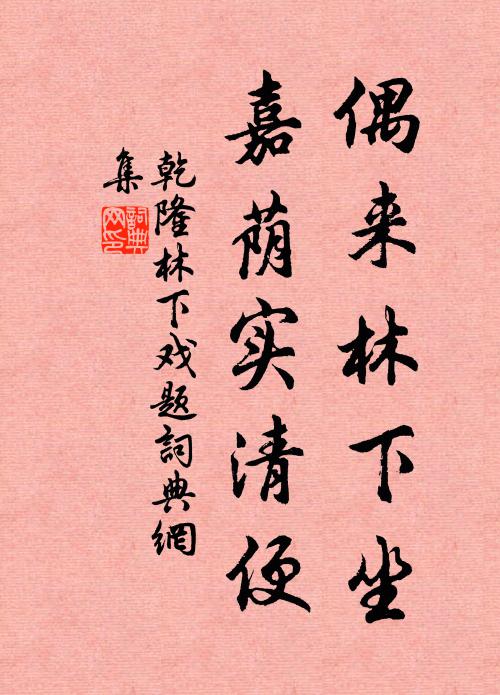 偶来林下坐
嘉荫实清便
乾隆林下戏题詞典網
集
詞典
网印